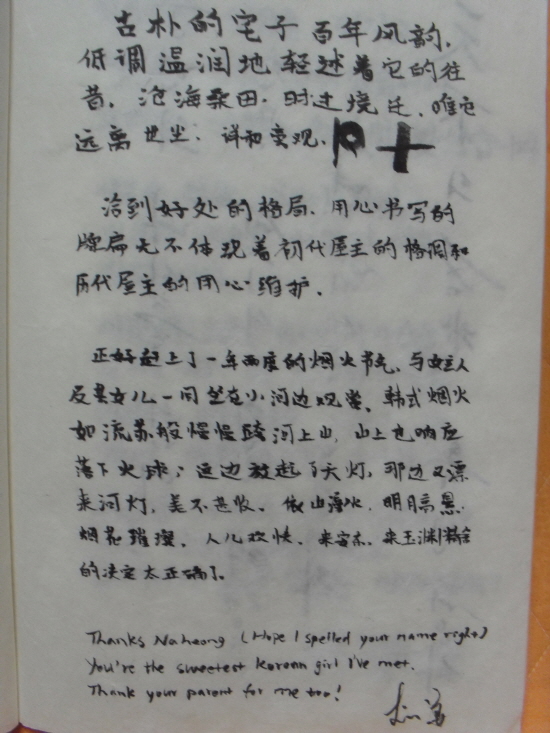 古朴的宅子 百年风韵,
低调温润地 轻述着它的往
昔, 沧海桑田. 时过境迁, 唯它
远离世尘. 详和变观.
洽到好处的格局. 用心书写的
牌扁无不体现着初代屋主的格调和
历代屋主的用心维护.
正好赶上了一年两度的烟火节, 与女主人
及其女儿一同坐在小河边观赏, 韩式烟火
如流苏般慢慢跨河上山, 山上也响应
落下火球; 这边放起了天灯, 那边又漂
来河灯, 美不甚收. 依山傍水, 明月高悬.
烟花璀璨. 人儿欢快. 来安东, 来玉渊精舍
的决定太正确了.
Thanks Naheong (Hope I spelled your name right)
You're the sweetest korean girl I've met.
Thank your parent for me too!